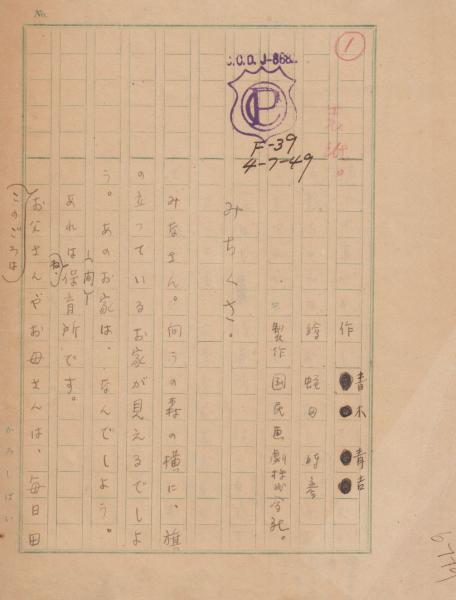 No.
1
C.C.D. J-868
CP
F-39
4-7-49
作 青木 青吉
絵
製作 国民画劇株式会社。
みちくさ。
みなさん。向うの森の横に、旗
の立っているお家が見えるでしよ
う。あのお家は、なんでしよう。
(間)
あれは保育所です。
(ね)
お父さんやお母さんは、毎日田
(このごろは)
かみしばい